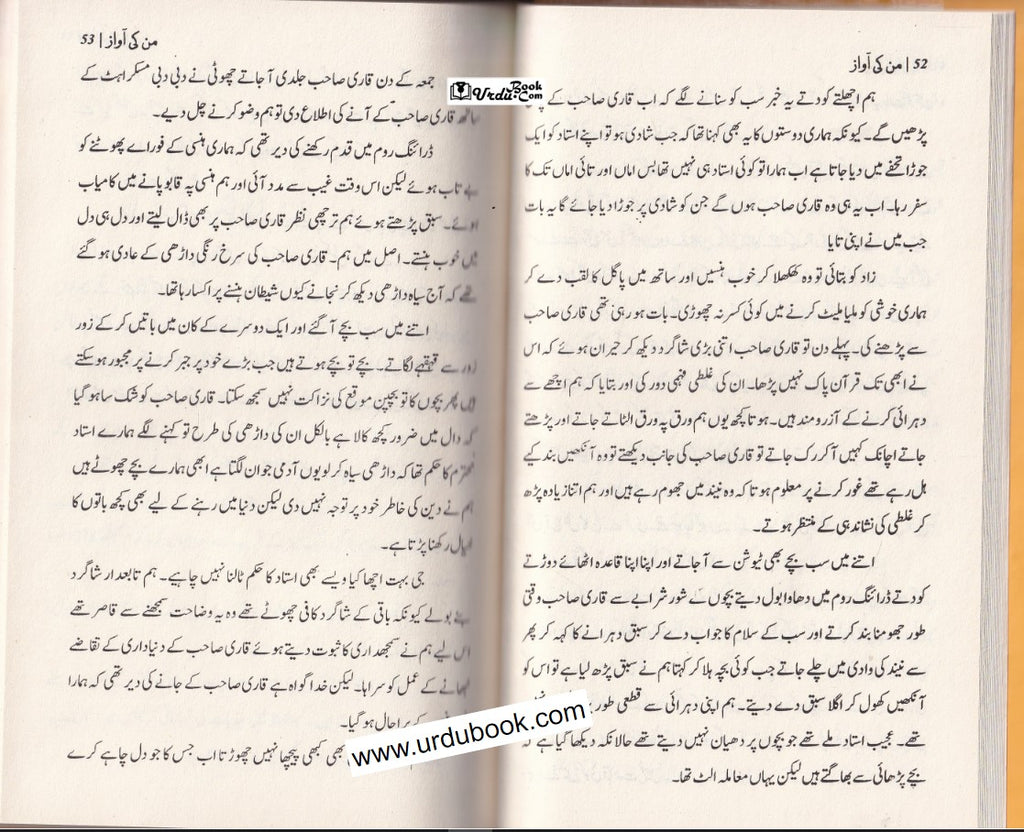 52 | من کی آواز
ہم اچھلتے کودتے یہ خبر سب کو سنانے لگے کہ اب قاری صاحب کے
پڑھیں گے۔ کیونکہ ہماری دوستوں کا یہ بھی کہنا تھا کہ جب شادی ہو تو اپنے استاد کو ایک
جوڑا تحفے میں دیا جاتا ہے اب ہمارا تو کوئی استاد ہی نہیں تھا بس اماں اور تائی اماں تک کا
سفر رہا۔ اب یہ ہی وہ قاری صاحب ہوں گے جن کو شادی پر جوڑا دیا جائے گا یہ بات
جب میں نے اپنی تایا
زاد کو بتائی تو وہ کھلکھلا کر خوب ہنسیں اور ساتھ میں پاگل کا لقب دے کر
ہماری خوشی کو ملیا ملیٹ کرنے میں کوئی کسر نہ چھوڑی۔ بات ہو رہی تھی قاری صاحب
سے پڑھنے کی۔ پہلے دن تو قاری صاحب اتنی بڑی شاگرد دیکھ کر حیران ہوئے کہ اس
نے ابھی تک قرآن پاک نہیں پڑھا۔ ان کی غلطی فہمی دور کی اور بتایا کہ ہم اچھے سے
دہرائی کرنے کے آرزومند ہیں۔ ہوتا کچھ یوں ہم ورق پہ ورق الٹاتے جاتے اور پڑھتے
جاتے اچانک کہیں آ کر رک جاتے تو قاری صاحب کی جانب دیکھتے تو وہ آنکھیں بند کیے
ہل رہے تھے غور کرنے پر معلوم ہوتا کہ وہ نیند میں جھوم رہے ہیں اور ہم اتنا زیادہ پڑھ
کر غلطی کی نشاندہی کے منتظر ہوتے۔
اتنے میں سب بچے بھی ٹیوشن سے آ جاتے اور اپنا اپنا قاعدہ اٹھائے دوڑتے
کودتے ڈرائنگ روم میں دھاوا بول دیتے بچوں کے شور شرابے سے قاری صاحب وقتی
طور جھومنا بند کرتے اور سب کے سلام کا جواب دے کر سبق دہرانے کا کہہ کر پھر
سے نیند کی وادی میں چلے جاتے جب کوئی بچہ ہلا کر کہتا ہم نے سبق پڑھ لیا ہے تو اس کو
آنکھیں کھول کر اگلا سبق دے دیتے۔ ہم اپنی دہرائی سے قطعی طور
تھے۔ عجیب استاد ملے تھے جو بچوں پر دھیان نہیں دیتے تھے حالانکہ دیکھا گیا ہے کہ
بچے پڑھائی سے بھاگتے ہیں لیکن یہاں معاملہ الٹ تھا۔
من کی آواز | 53
جمعہ کے دن قاری صاحب جلدی آ جاتے چھوٹی نے دبی دبی مسکراہٹ کے
ساتھ قاری صاحب کے آنے کی اطلاع دی تو ہم وضو کرنے چل دیے۔
ڈرائنگ روم میں قدم رکھنے کی دیر تھی کہ ہماری ہنسی کے فوراے پھوٹنے کو
بے تاب ہوئے لیکن اس وقت غیب سے مدد آئی اور ہم ہنسی پہ قابو پانے میں کامیاب
ہوئے۔ سبق پڑھتے ہوئے ہم ترچھی نظر قاری صاحب پر بھی ڈال لیتے اور دل ہی دل
میں خوب ہنستے۔ اصل میں ہم۔ قاری صاحب کی سرخ رنگی داڑھی کے عادی ہو گئے
تھے کہ آج سیاہ داڑھی دیکھ کر نجانے کیوں شیطان ہنسنے پر اکسا رہا تھا۔
اتنے میں سب بچے آ گئے اور ایک دوسرے کے کان میں باتیں کر کے زور
زور سے قہقہے لگاتے۔ بچے تو بچے ہوتے ہیں جب بڑے خود پر جبر کرنے پر مجبور ہو سکتے
ہیں پھر بچوں کا تو بچپن موقع کی نزاکت نہیں سمجھ سکتا۔ قاری صاحب کو شک سا ہو گیا
کہ دال میں ضرور کچھ کالا ہے بالکل ان کی داڑھی کی طرح تو کہنے لگے ہمارے استاد
محترم کا حکم تھا کہ داڑھی سیاہ کر لو یوں آدمی جوان لگتا ہے ابھی ہمارے بچے چھوٹے ہیں
ہم نے دین کی خاطر خود پر توجہ نہیں دی لیکن دنیا میں رہنے کے لیے بھی کچھ باتوں کا
خیال رکھنا پڑتا ہے۔
جی بہت اچھا کیا ویسے بھی استاد کا حکم ٹالنا نہیں چاہیے۔ ہم تابعدار شاگرد
بنے بولے کیونکہ باقی کے شاگرد کافی چھوٹے تھے وہ یہ وضاحت سمجھنے سے قاصر تھے
اس لیے ہم نے سمجھداری کا ثبوت دیتے ہوئے قاری صاحب کے دنیاداری کے تقاضے
نبھانے کے عمل کو سراہا۔ لیکن خدا گواہ ہے قاری صاحب کے جانے کی دیر تھی کہ ہمارا
کے برا حال ہو گیا۔
بھی کبھی پیچھا نہیں چھوڑتا اب جس کا جو دل چاہے کرے
UrduBook.Com
www.urdubook.com